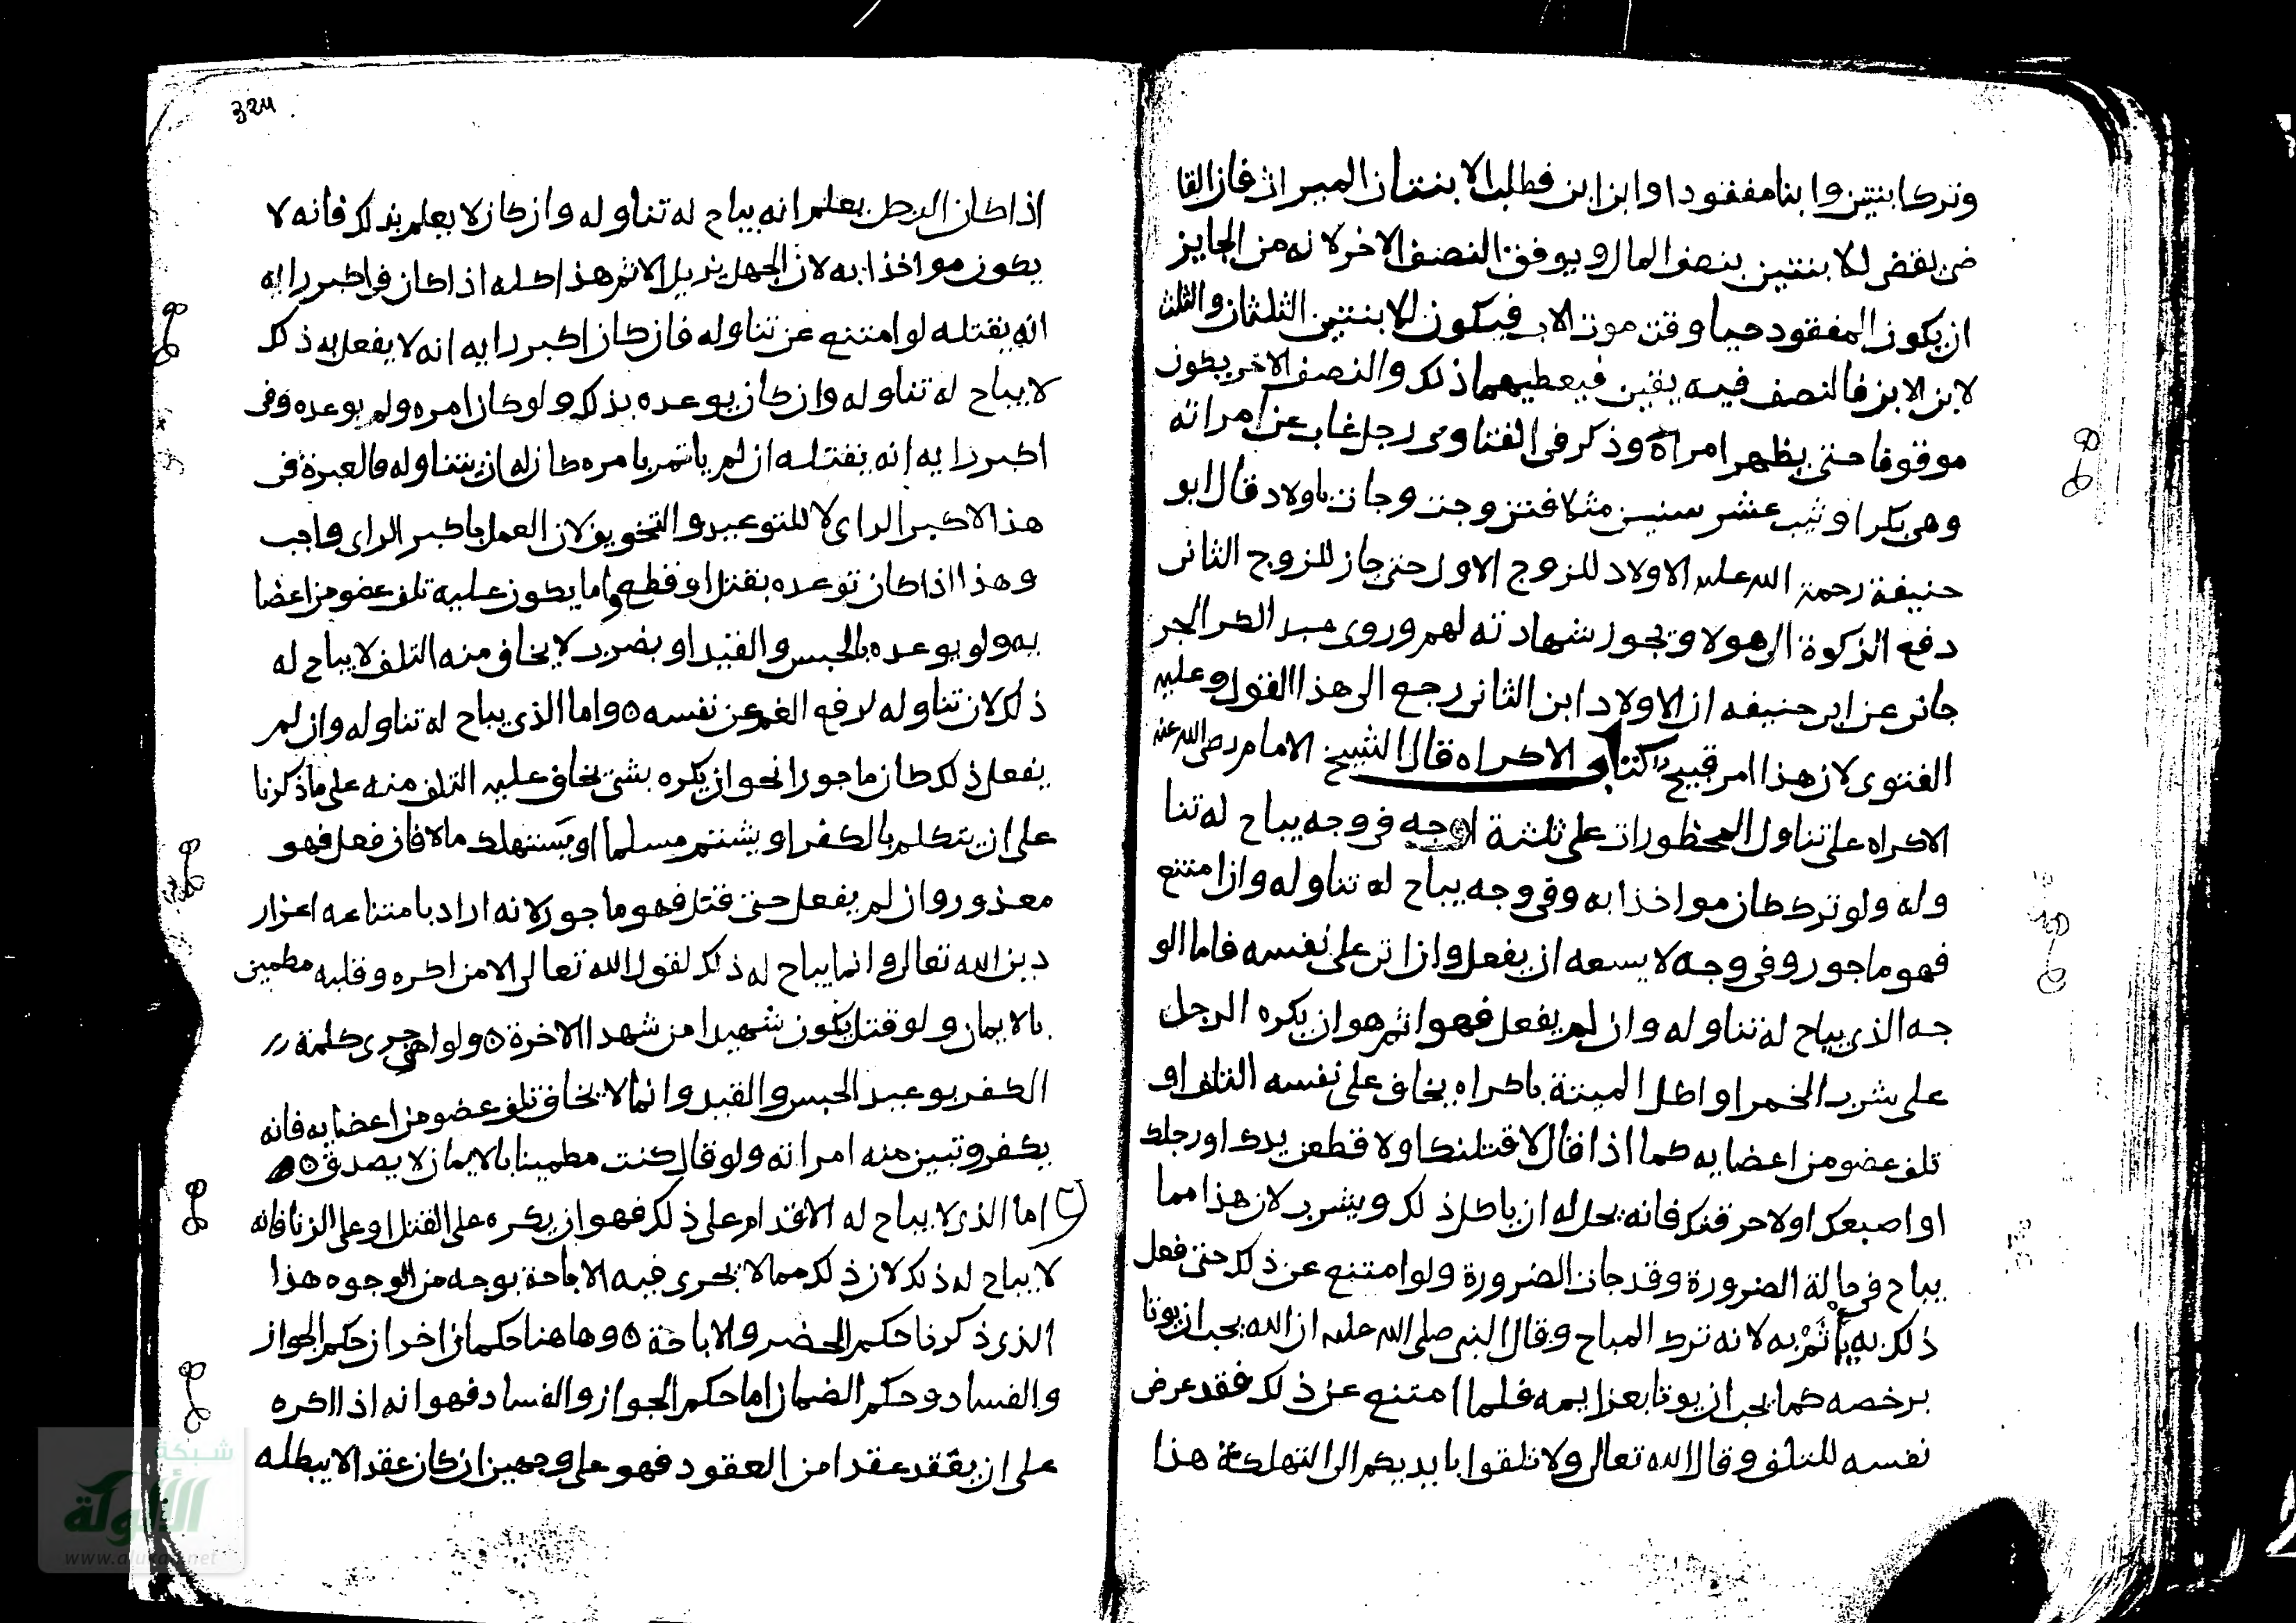 وترك ابنتين وابنا مفقودا وابن ابن فطلب الابنتان الميراث فان القا
ضى يقضى للابنتين بنصف المال ويوقف النصف الاخر لانه من الجايز
ان يكون المفقود حيا وقت موت الاب فيكون للابنتين الثلثان والثلث
لابن الابن فالنصف فيه يقين فيعطيهما ذلك والنصف الاخر يكون
موقوفا حتى يظهر امراة وذكر فى الفتاوى رجل غاب عن امراته
وهى بكر او ثيب عشر سنين مثلا فتزوجت وجات باولاد قال ابو
حنيفة رحمة الله عليه الاولاد للزوج الاول حتى جاز للزوج الثانى
دفع الزكوة الى هولا وتجوز شهادته لهم وروى عبد الكر الجر
جانى عن ابى حنيفه ان الاولاد ابن الثانى رجع الى هذا القول وعليه
الفتوى لان هذا امر قبيح كتاب الاكراه قال الشيخ الامام رضى الله عنه
الاكراه على تناول المحظورات على ثلثة اوجه فى وجه يباح له تنا
وله ولو ترك كان مواخذا به وفى وجه يباح له تناوله وان امتنع
فهو ماجور وفى وجه لا يسعه ان يفعل وان اتى على نفسه فاما الو
جه الذى يباح له تناوله وان لم يفعل فهو اثم هو ان يكره الرجل
على شرب الخمر او اكل الميتة باكراه يخاف على نفسه التلف او
تلف عضو من اعضايه كما اذا قال لاقتلنك او لاقطعن يدك او رجلك
او اصبعك او لاحرقنك فانه يحل له ان ياكل ذلك ويشرب لان هذا مما
يباح فى حالة الضرورة وقد جات الضرورة ولو امتنع عن ذلك حتى فعل
ذلك به يأثم به لانه ترك المباح وقال النبى صلى الله عليه ان الله يحب ان يوتا
برخصه كما يحب ان يوتا بعزايمه فلما امتنع عن ذلك فقد عرض
نفسه للتلف وقال الله تعالى ولا تلقوا بايديكم الى التهلكة هذا
324
اذا كان الرجل يعلم انه يباح له تناوله وان كان لا يعلم بذلك فانه لا
يكون مواخذا به لان الجهل يزيل الاثم هذا كله اذا كان فى اكبر رايه
انه يقتله لو امتنع عن تناوله فان كان اكبر رايه انه لا يفعل به ذلك
لا يباح له تناوله وان كان يوعده بذلك ولو كان امره ولم يوعده وفى
اكبر رايه انه يقتله ان لم ياتمر بامره كان له ان يتناوله فالعبرة فى
هذا لاكبر الراى لا للتوعيد والتخويف لان العمل باكبر الراى واجب
وهذا اذا كان توعده بقتل او قطع واما يكون عليه تلف عضو من اعضا
يه ولو يوعده بالحبس والقيد او بضرب لا يخاف منه التلف لا يباح له
ذلك لان تناوله لدفع الغم عن نفسه ٥ واما الذى يباح له تناوله وان لم
يفعل ذلك كان ماجورا نحو ان يكره بشى يخاف عليه التلف منه على ما ذكرنا
على ان يتكلم بالكفر او يشتم مسلما او يستهلك مالا فان فعل فهو
معذور وان لم يفعل حتى قتل فهو ماجور لانه اراد بامتناعه اعزاز
دين الله تعالى وانما يباح له ذلك لقول الله تعالى الا من اكره وقلبه مطمين
بالايمان ولو قتل يكون شهيدا من شهدا الاخرة ٥ ولو اجرى كلمة
الكفر بوعيد الحبس والقيد وانما لا يخاف تلف عضو من اعضايه فانه
يكفر وتبين منه امراته ولو قال كنت مطمينا بالايمان لا يصدق ٥
اما الذى لا يباح له الاقدام على ذلك فهو ان يكره على القتل او على الزنا فانه
لا يباح له ذلك لان ذلك مما لا يجرى فيه الاباحة بوجه من الوجوه هذا
الذى ذكرنا حكم الحضر والاباحة ٥ وهاهنا حكمان اخران حكم الجواز
والفساد وحكم الضمان اما حكم الجواز والفساد فهو انه اذا اكره
على ان يعقد عقدا من العقود فهو على وجهين ان كان عقدا لا يبطله
شبكة
الألوكة
www.alukah.net